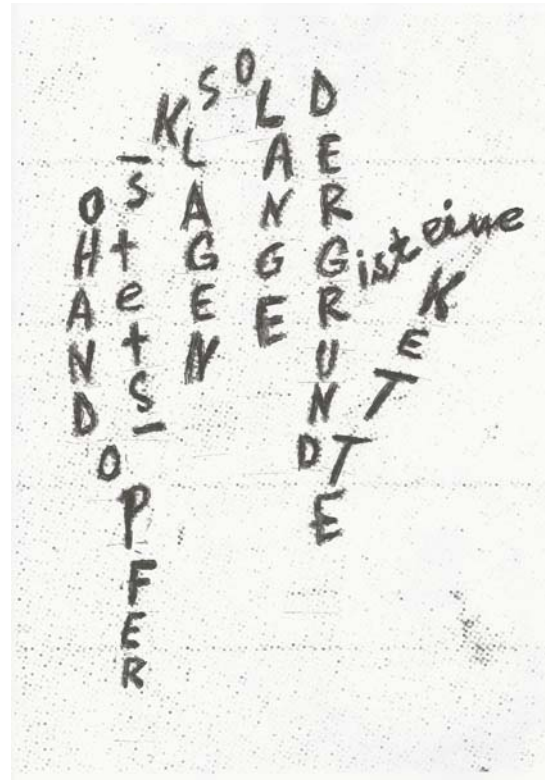 OHAND
OPFER
–stets–
KLAGEN
SOLANGE
DERGRUND
ist eine
KETTE